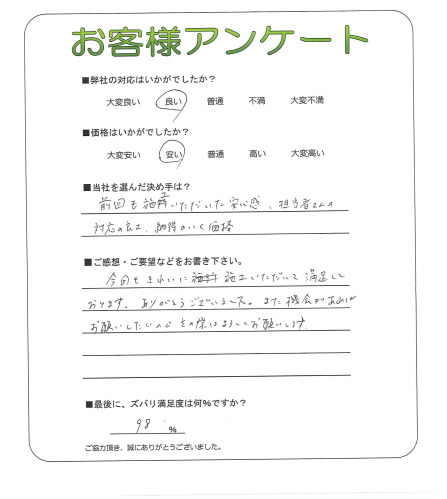 お客様アンケート
■弊社の対応はいかがでしたか?
大変良い 良い 普通 不満 大変不満
■価格はいかがでしたか?
大変安い 安い 普通 高い 大変高い
■当社を選んだ決め手は?
前回も施工いただいた安心感、担当者さんの
対応の良さ、納得のいく価格
■ご感想・ご要望などをお書き下さい。
今回もきれいに施工いただいて満足して
おります。ありがとうございました。また機会があれば
お願いしたいので その際はよろしくお願いします
■最後に、ズバリ満足度は何%ですか?
98 %
ご協力頂き、誠にありがとうございました。